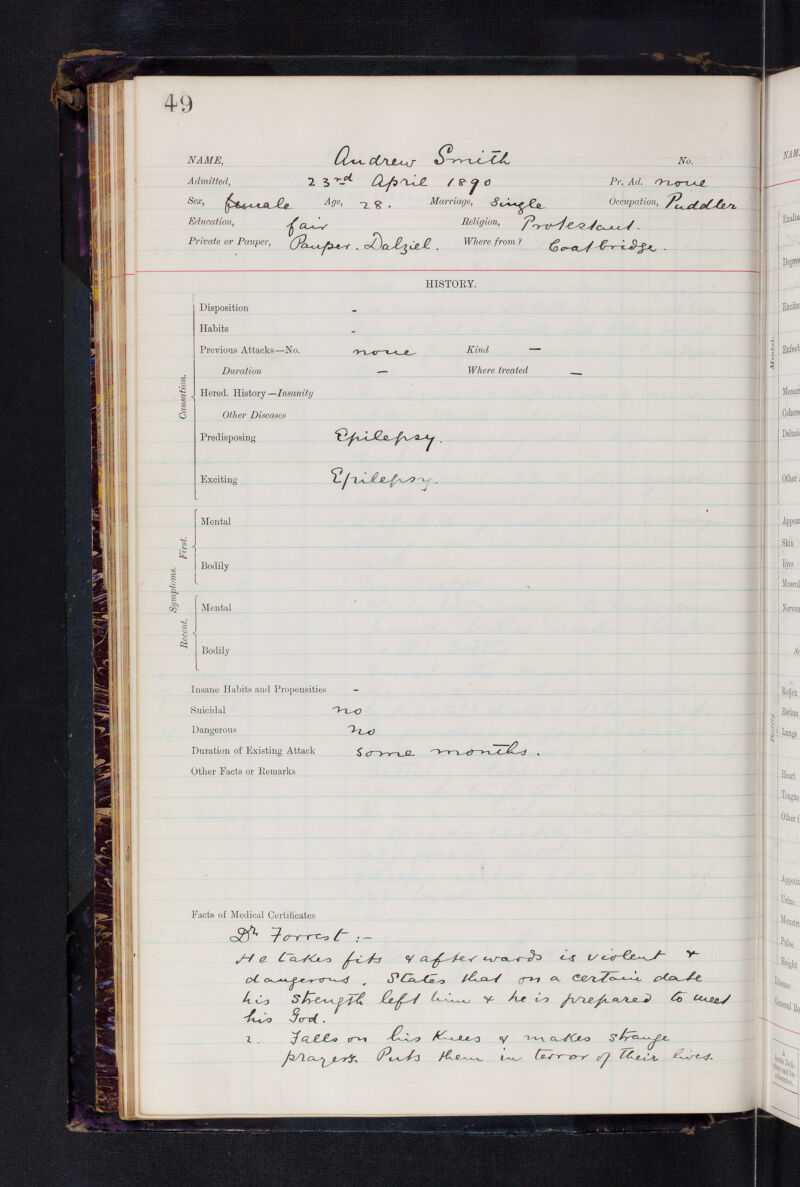 49
NAME, Andrew Smith No.
Admitted, 23rd April 1890 Pr. Ad. none
Sex, female Age, 28. Marriage, Single Occupation, Puddler
Education, fair Religion, Protestant.
Private or Pauper, Pauper. Dalziel. Where from? Coatbridge.
HISTORY.
Causation.
Disposition -
Habits -
Previous Attacks—No. none Kind —
Duration — Where treated —
Hered. History—Insanity
Other Diseases
Predisposing Epilepsy.
Exciting Epilepsy.
Symptoms.
First.
Mental
Bodily
Recent.
Mental
Bodily
Insane Habits and Propensities -
Suicidal no
Dangerous no
Duration of Existing Attack Some months.
Other Facts or Remarks
Facts of Medical Certificates
Dr Forrest :-
He takes fits & afterwards is violent &
dangerous. States that on a certain date
his strength left him & he is prepared to meet
his God.
2. Falls on his Knees & makes strange
prayers. Puts them in terror of their lives.
NAM
Mental.
Exalta
Depres
Excite
Enfeeb
Memor
Cohere
Delusi
Other
Bodily
Appear
Skin
Eyes
Muscul
Nervou
Reflex
Retina
Lungs
Heart
Tongue
Other
Appetit
Urine
Menstr
Pulse
Weight
Disease
General Bo